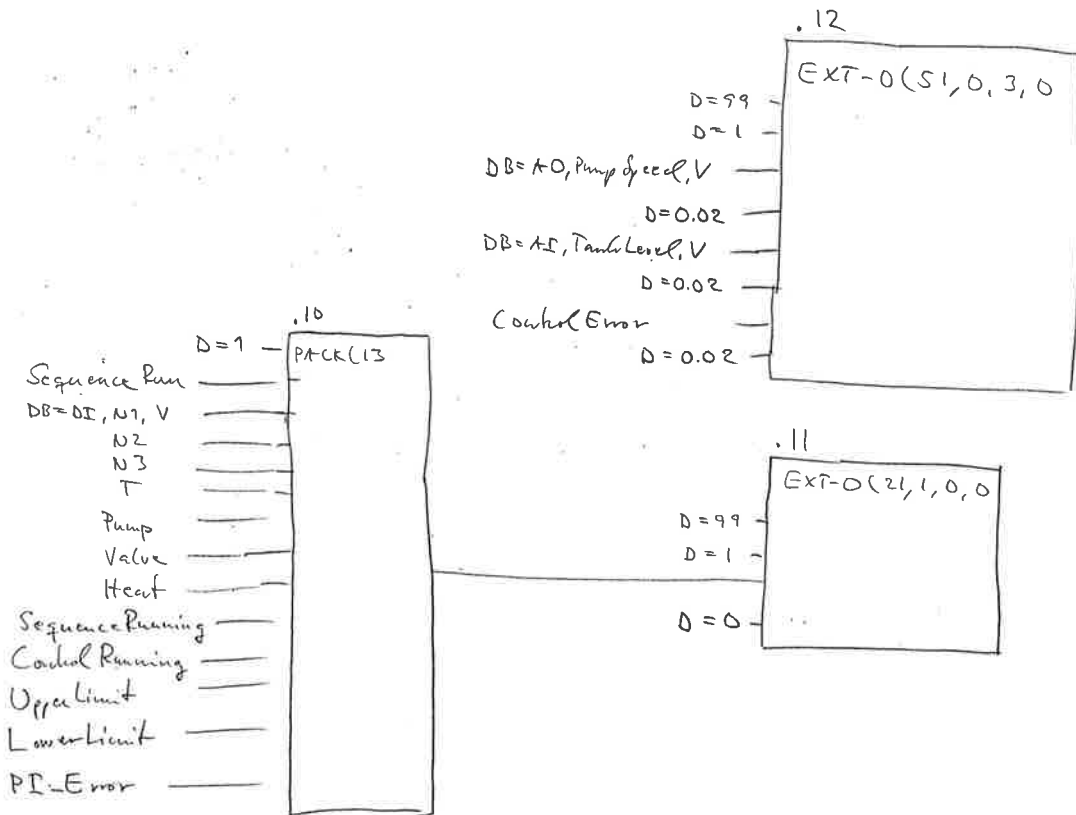 .12
EXT-O(51,0,3,0
D=99
D=1
DB=AO, PumpSpeed, V
D=0.02
DB=AI, TankLevel, V
D=0.02
ControlError
D=0.02
.10
PACK(13
D=1
SequenceRun
DB=DI, N1, V
N2
N3
T
Pump
Valve
Heat
SequenceRunning
ControlRunning
UpperLimit
LowerLimit
PI-Error
.11
EXT-O(21,1,0,0
D=99
D=1
D=0